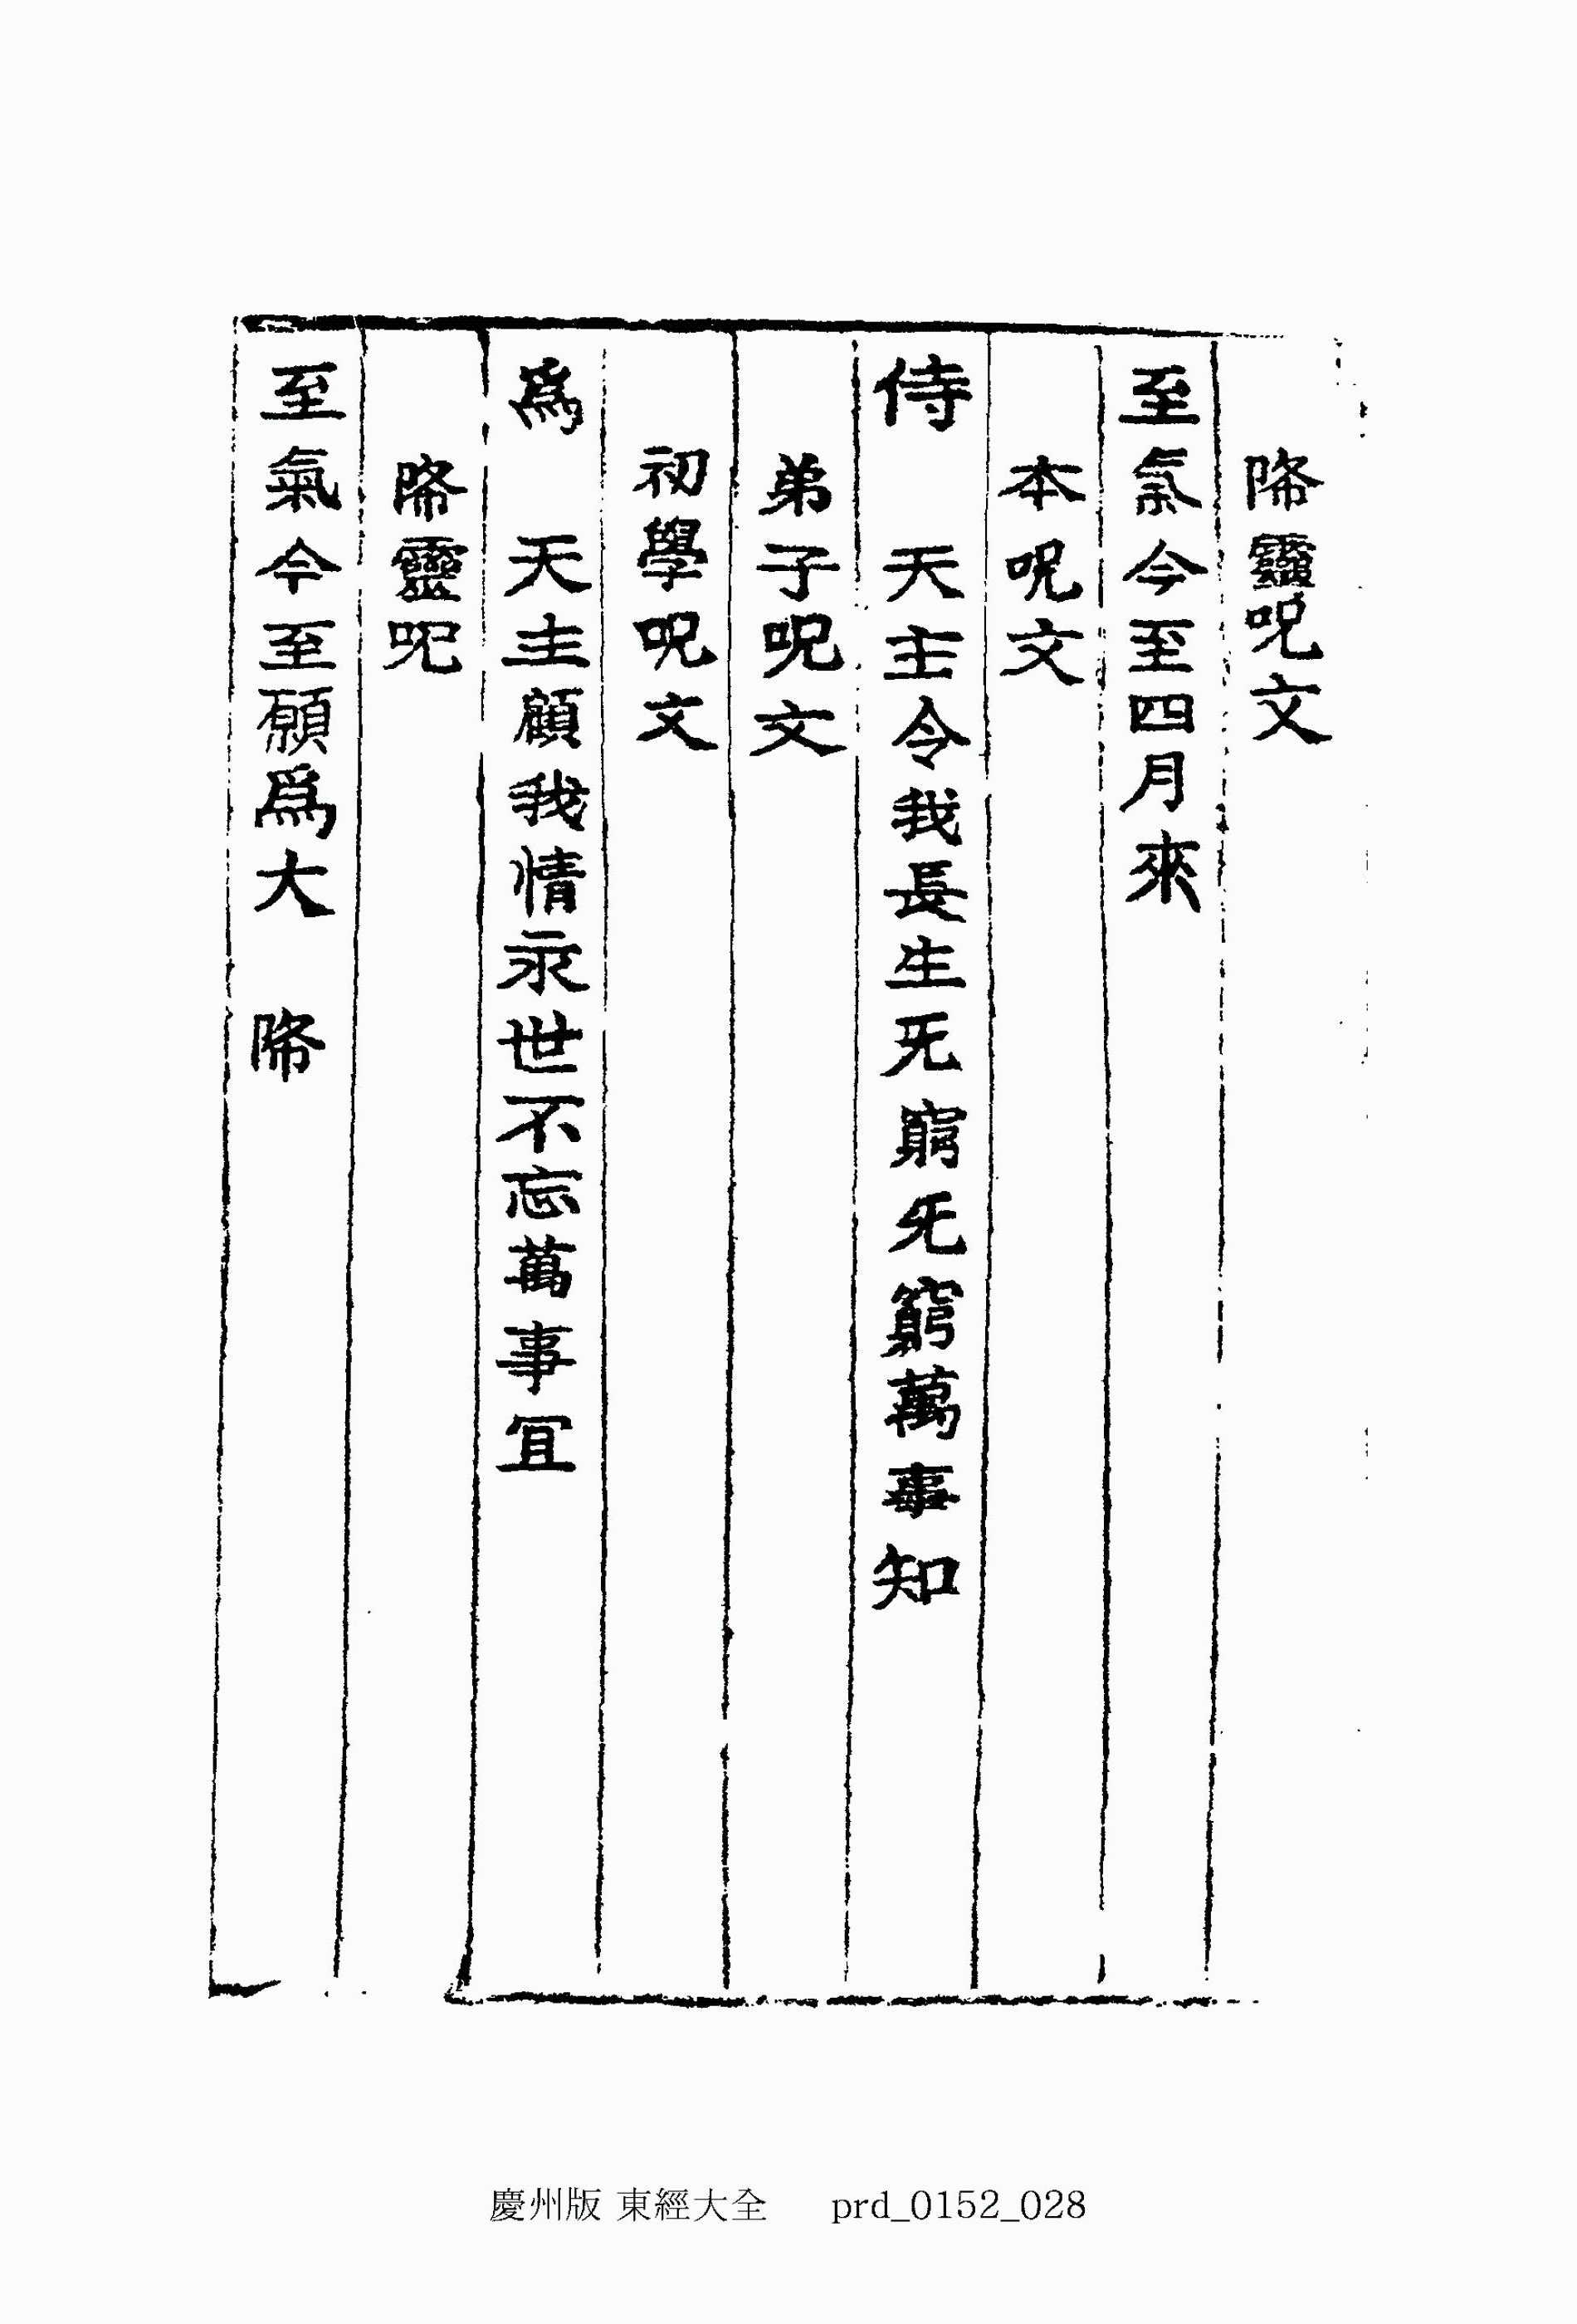 降靈呪文
至氣今至四月來
本呪文
侍 天主令我長生无窮无窮萬事知
弟子呪文
初學呪文
爲 天主顧我情永世不忘萬事冝
降靈呪
至氣今至願爲大 降
慶州版 東經大全 prd_0152_028